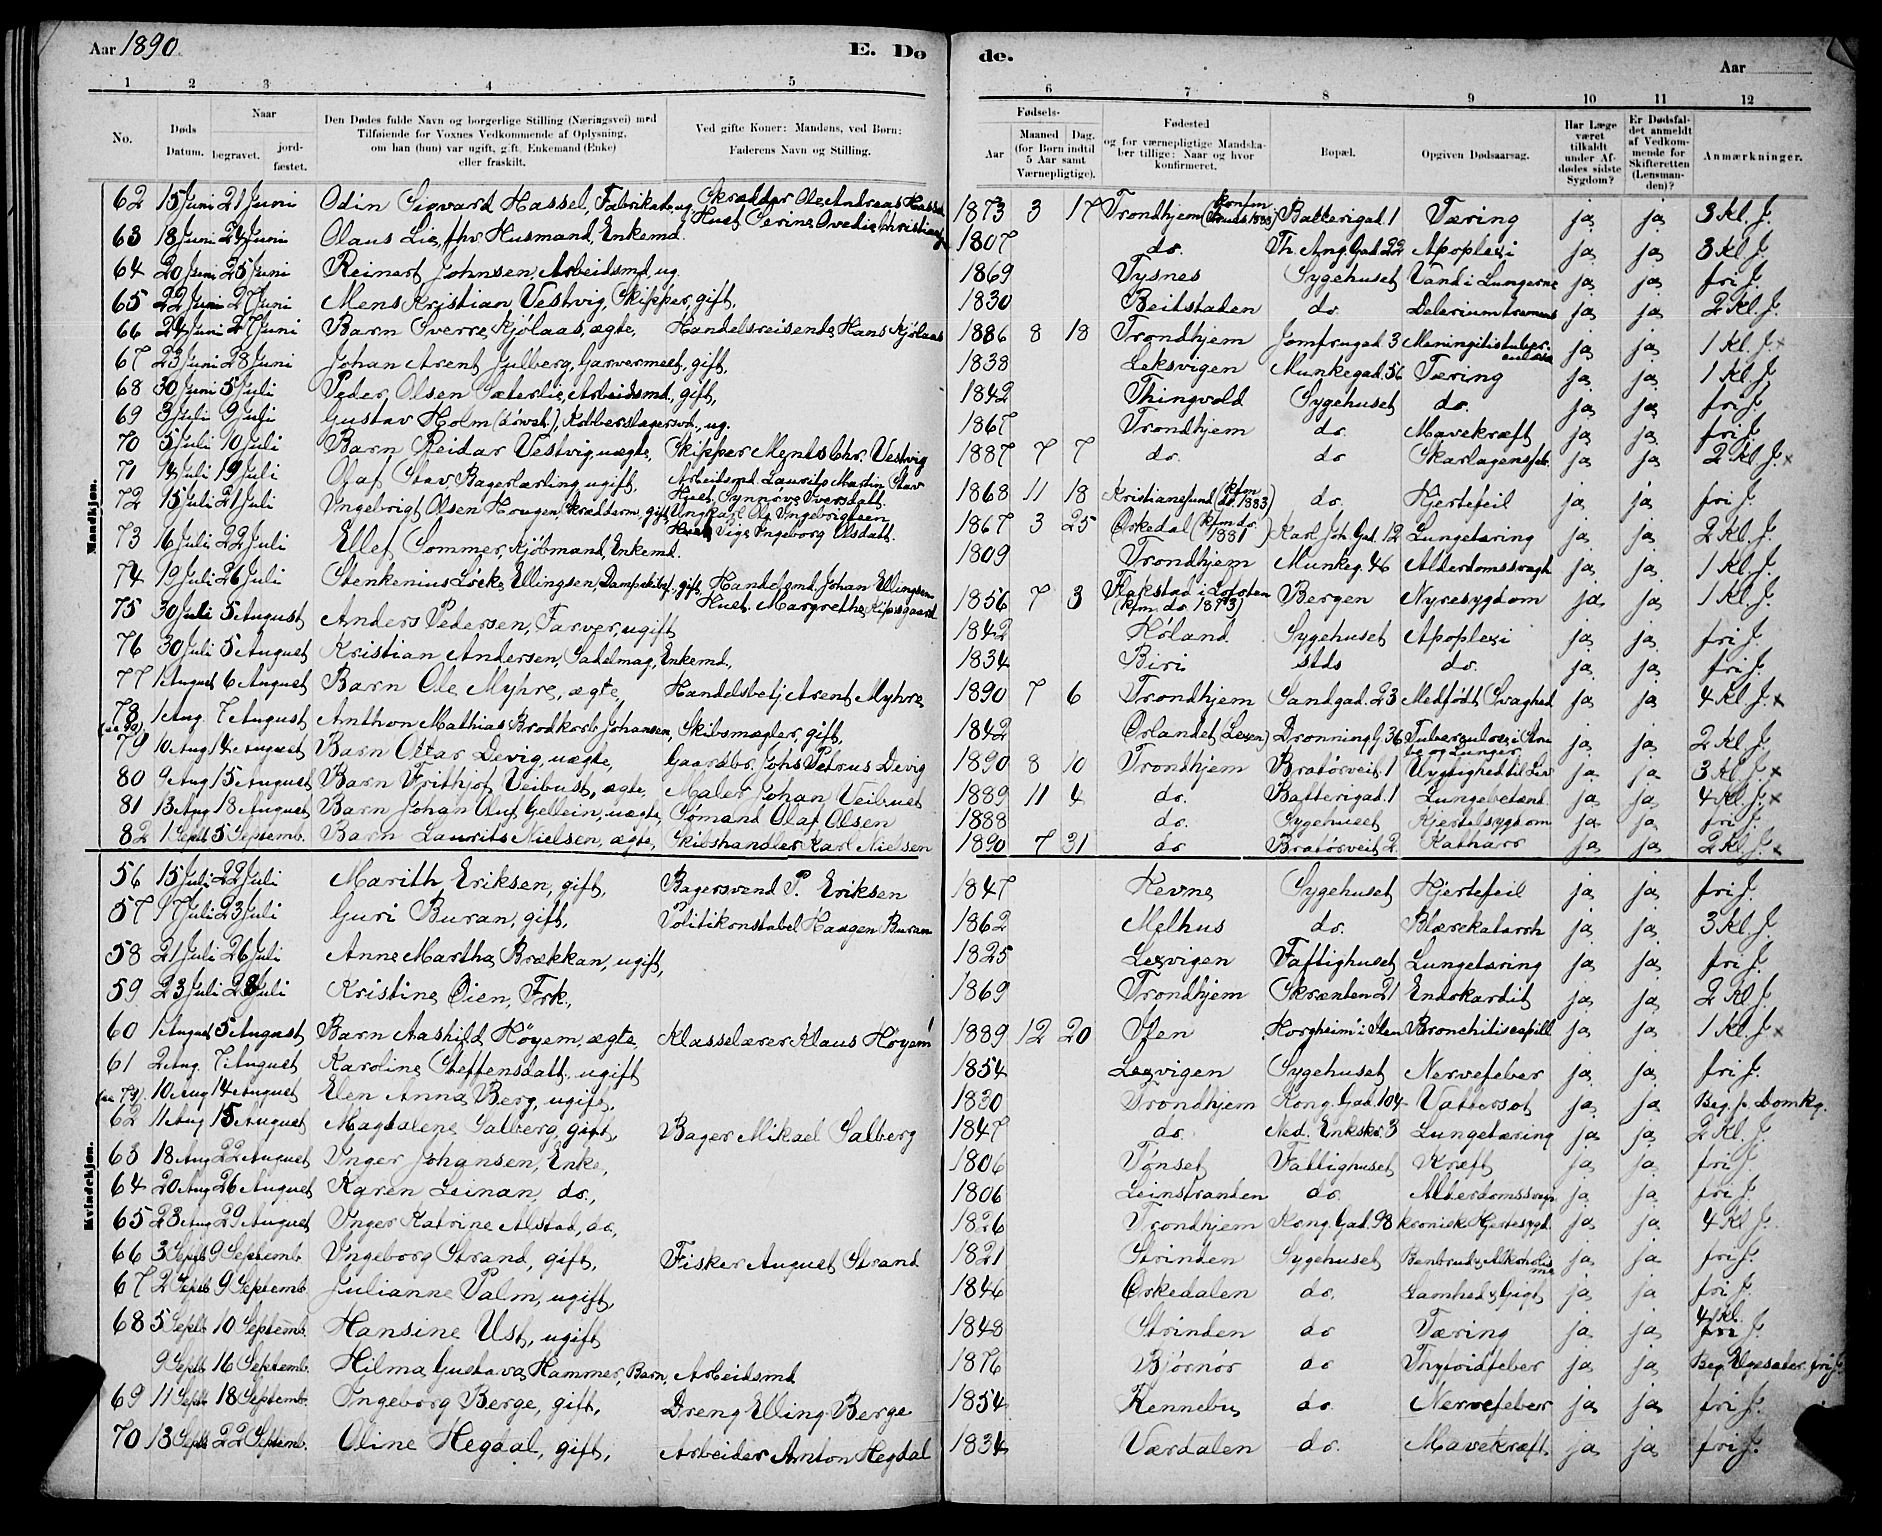 Aar 1890.
E. Do
de.
Aar
1 2 3 4 5 6 7 8 9 10 11 12
No.
Døds Datum.
Naar begravet.
jordfæstet.
Den Dødes fulde Navn og borgerlige Stilling (Næringsvei) med
Tilføiende for Voxnes Vedkommende af Oplysning,
om han (hun) var ugift, gift, Enkemand (Enke)
eller fraskilt.
Ved gifte Koner: Mandens, ved Børn:
Faderens Navn og Stilling.
Fødsels-
Aar
Maaned (for Børn indtil 5 Aar samt Værnepligtige).
Dag.
Fødested
og for værnepligtige Mandskaber tillige: Naar og hvor konfirmeret.
Bopæl.
Opgiven Dødsaarsag.
Har Læge været tilkaldt under Afdødes sidste Sygdom?
Er Dødsfaldet anmeldt af Vedkommende for Skifteretten (Lensmanden)?
Anmærkninger.
Mandskjøn.
62 15 Juni 21 Juni Odin Sigvard Hassel, Fabrikarb, ug. Skrædder Ole Andreas Hassel Hust. Serine Ovedie Christiansd 1873 3 17 Trondhjem (konfm 1888) Batterigad. 1 Tæring ja ja 3 Kl. J.
63 18 Juni 24 Juni Olaus Lie, fhv. Husmand, Enkemd. 1807 do. Th. Ang. Gad. 22 Apoplexi ja ja 3 Kl. J.
64 20 Juni 25 Juni Reinert Johnsen, Arbeidsmd, ug. 1869 Tysnes Sygehuset Vand i Lungerne ja ja fri J.
65 22 Juni 27 Juni Mens Kristian Vestvig, Skipper, gift, 1830 Beitstaden do. Delerium tremens ja ja 2 Kl. J.
66 24 Juni 27 Juni Barn Sverre Kjølaas, ægte, Handelsreisende Hans Kjølaas 1886 8 18 Trondhjem Jomfrugad 3 Meningitis tuberculosa ja ja 1 Kl. J. x
67 23 Juni 28 Juni Johan Arent Julberg, Garvermest, gift, 1838 Leksvigen Munkegad. 56 Tæring ja ja 1 Kl. J.
68 30 Juni 5 Juli Peder Olsen Sæterlie, Arbeidsmd., gift, 1842 Thingvold Sygehuset do. ja ja fri J.
69 3 Juli 9 Juli Gustav Holm (døvst.), Kobberslagersv., ug. 1867 Trondhjem do. Mavekræft ja ja fri J.
70 5 Juli 10 Juli Barn Reidar Vestvig, uægte, Skipper Ments Chr. Vestvig 1887 7 7 do. do Skarlagensfeb. ja ja 2 Kl J. x
71 14 Juli 19 Juli Olaf Stav Bagerlærling ugift. Arbeidsmd. Laurits Martin Stav Hust. Synnøve Iversdatt. 1868 11 18 Kristianssund (kfm do. 1883) do. Hjertefeil ja ja fri J.
72 15 Juli 21 Juli Ingebrigt Olsen Hougen, Skrædderm, gift, Ungkarl Ole Ingebrigtsen Pige Ingeborg Olsdatt. 1867 3 25 Orkedal (kfm do. 1881) Karl Joh Gad. 12 Lungetæring ja ja 2 Kl. J.
73 16 Juli 22 Juli Ellef Sommer, Kjøbmand, Enkemd. 1809 Trondhjem Munkeg. 46 Alderdomssvagh ja ja 1 Kl. J.
74 19 Juli 26 Juli Stenkenius Løcke Ellingsen, Dampskibsf., gift, Handelsmd Johan Ellingsen Hust. Margrethe Kipsgaard 1856 7 3 Flakstad i Lofoten (kfm. do. 1873) Bergen Nyresygdom ja ja 1 Kl. J.
75 30 Juli 5 August Anders Pedersen, Farver, ugift 1842 Høland Sygehuset Apoplexi ja ja fri J.
76 30 Juli 5 August Kristian Andersen, Sadelmag, Enkemd., 1834 Biri stds do. ja ja fri J.
77 1 August 6 August Barn Ole Myhre, ægte, Handelsbetj Arent Myhre 1890 7 6 Trondhjem Sandgad. 23 Medfødt Svaghed ja ja 4 Kl J. x
78 1 Aug. 7 August Anthon Mathias Brodkorb Johansen, Skibsmægler, gift, 1842 Ørlandet Dronning G. 36 Tuberculose i Strube og Lunger ja ja 2 Kl. J.
79 10 Aug 14 August Barn Ottar Devig, uægte, Gaardbr. Johs Petrus Devig 1890 8 10 Trondhjem Bratørveit. 1 Uygtighed til Liv ja ja 3 Kl. J. x
80 9 Aug 15 August Barn Frithjof Veibust, ægte, Maler Johan Veibust 1889 11 4 do. Batterigad. 1 Lungebetænd ja ja 4 Kl. J. x
81 13 Aug 18 August Barn Johan Oluf Gellein, uægte, Sømand Olaf Olsen 1888 do. Sygehuset Kjertelsygdom ja ja fri J.
82 1 Septb 5 Septemb. Barn Laurits Nielsen, ægte, Skibshandler Karl Nielsen 1890 7 31 do Bratørveit 2. Katharr ja ja 2 Kl. J. x
Kvindekjøn.
56 15 Juli 22 Juli Marith Eriksen, gift, Bagersvend P. Eriksen 1847 Hevne Sygehuset Hjertefeil ja ja fri J.
57 17 Juli 23 Juli Guri Buran, gift, Politikonstabel Haagen Buran 1862 Melhus do. Blærekatarrh ja ja 3 Kl. J.
58 21 Juli 26 Juli Anne Martha Brækkan, ugift, 1825 Lexvigen Fattighuset Lungetæring ja ja fri J.
59 23 Juli 28 Juli Kristine Øien, Frk., 1869 Trondhjem Skrænten 21 Endokardit ja ja 2 Kl. J.
60 1 August 5 August Barn Aashild Høyem, ægte, Klasselærer Klaus Høyem 1889 12 20 Ilen Horgheim i Ilen Bronchitis capill ja ja 1 Kl. J. x
61 2 Aug. 7 August Karoline Steffensdatt. ugift 1854 Lexvigen Sygehuset Nervefeber ja ja fri J.
(se 79). 10 Aug 14 August Elen Anna Berg, ugift. 1830 Trondhjem Kong. Gad. 104 Vattersot ja ja Beg. p. Domkg.
62 11 Aug 15 August Magdalene Salberg, gift, Bager Mikael Salberg 1847 do. Ned. Enkskr. 3 Lungetæring ja ja 2 Kl. J.
63 18 Aug 22 August Inger Johansen, Enke, 1806 Tønset Fattighuset Kræft ja ja fri J.
64 20 Aug 26 August Karen Leinan, do., 1806 Leinstranden do. Alderdomssvag ja ja fri J.
65 23 Aug 29 August Inger Katrine Alstad, do, 1826 Trondhjem Kong. Gad. 98 kronisk Hjertesygd. ja ja 4 Kl J.
66 3 Septb 9 Septemb. Ingeborg Strand, gift, Fisker August Strand 1821 Strinden Sygehuset Benbrud & Alkoholisme ja ja fri J.
67 2 Septb 9 Septemb. Julianne Palm, ugift, 1846 Orkedalen do. Lamhed & Gigt ja ja fri J.
68 5 Septb 10 Septemb. Hansine Ust, ugift 1848 Strinden do Tæring ja ja 4 Kl. fri J.
9 Septb 16 Septemb. Hilma Gustava Hammer, Barn, Arbeidsmd 1876 Bjørnør do Thyfoidfeber ja ja fri J.
69 11 Septb 18 Septemb. Ingeborg Berge, gift, Dreng Elling Berge 1854 Rennebu do. Nervefeber ja ja fri J.
70 13 Septb 22 Septemb. Oline Hegdal, gift, Arbeider Anton Hegdal 1834 Værdalen do. Mavekræft. ja ja fri J.